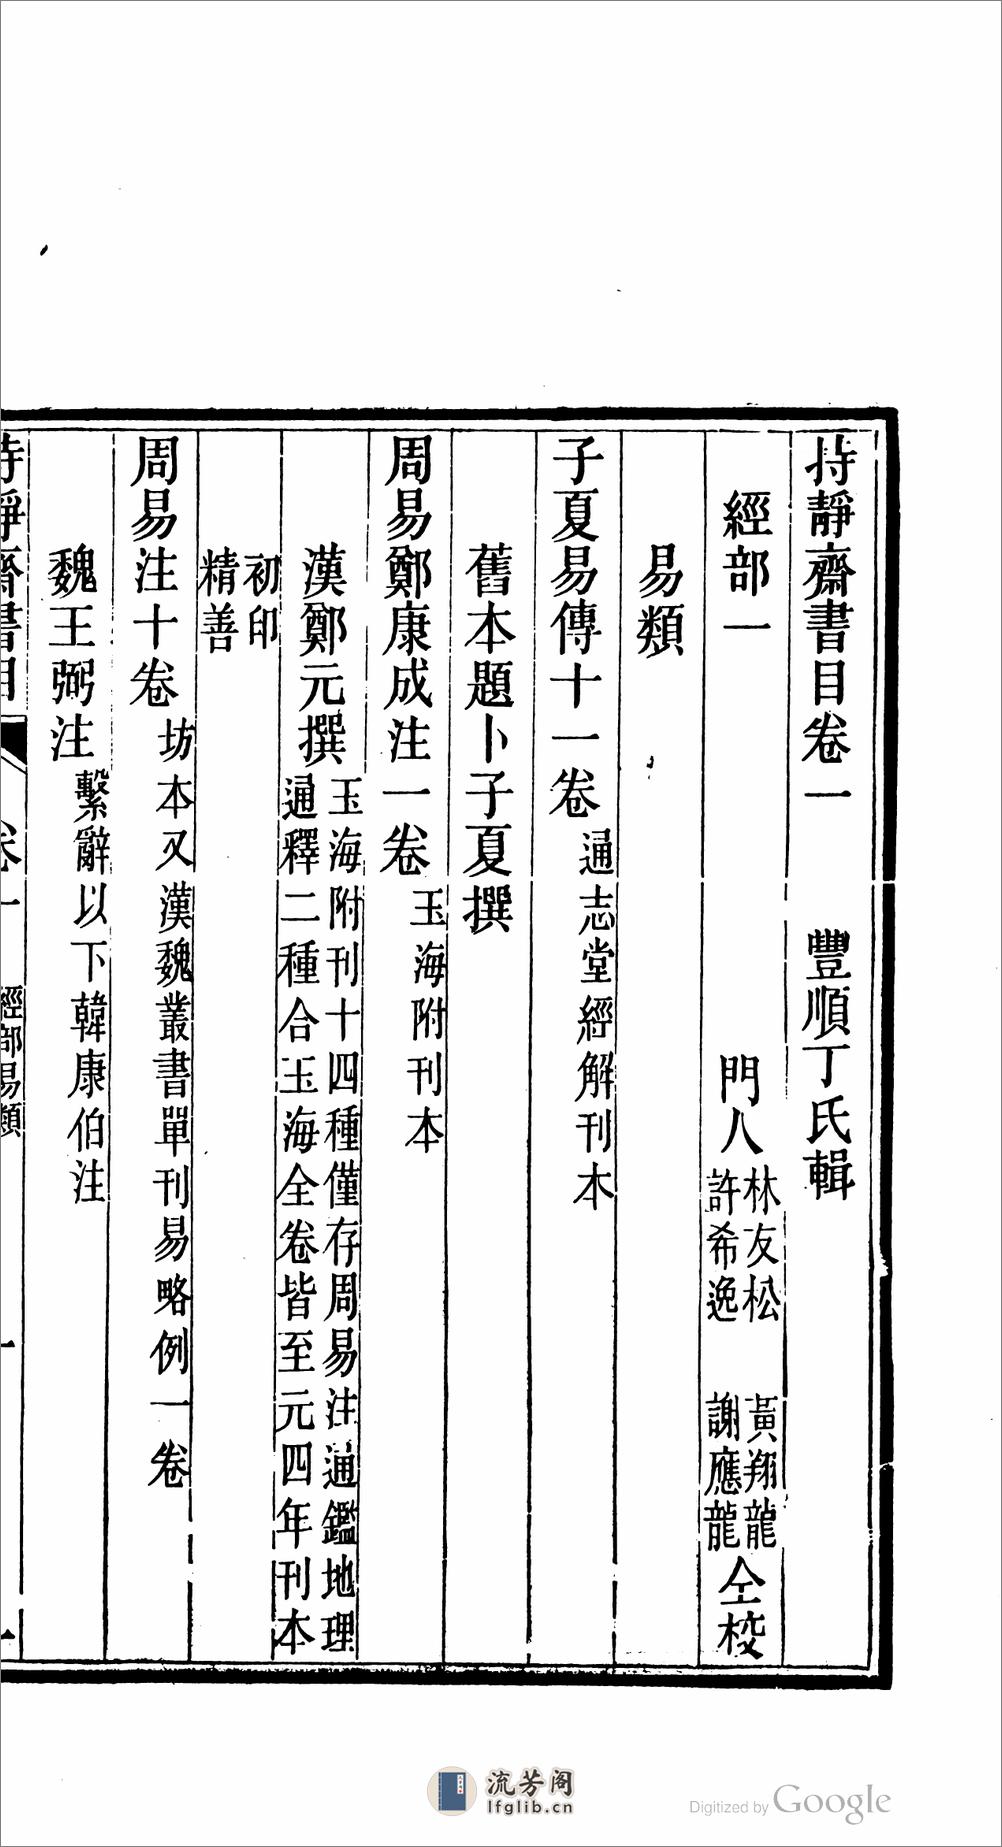 持靜齋書目卷一 豐順丁氏輯
經部一 門人 林友松 黃翔龍
許希逸 謝應龍 仝校
易類
子夏易傳十一卷 通志堂經解刊本
舊本題卜子夏撰
周易鄭康成注一卷 玉海附刊本
漢鄭元撰 玉海附刊十四種僅存周易注通鑑地理
通釋二種合玉海全卷皆至元四年刊本
初印
精善
周易注十卷 坊本又漢魏叢書單刊易略例一卷
魏王弼注 繫辭以下韓康伯注
持靜齋書目 卷一 經部易類 一
流芳阁
lfglib.cn
Digitized by Google